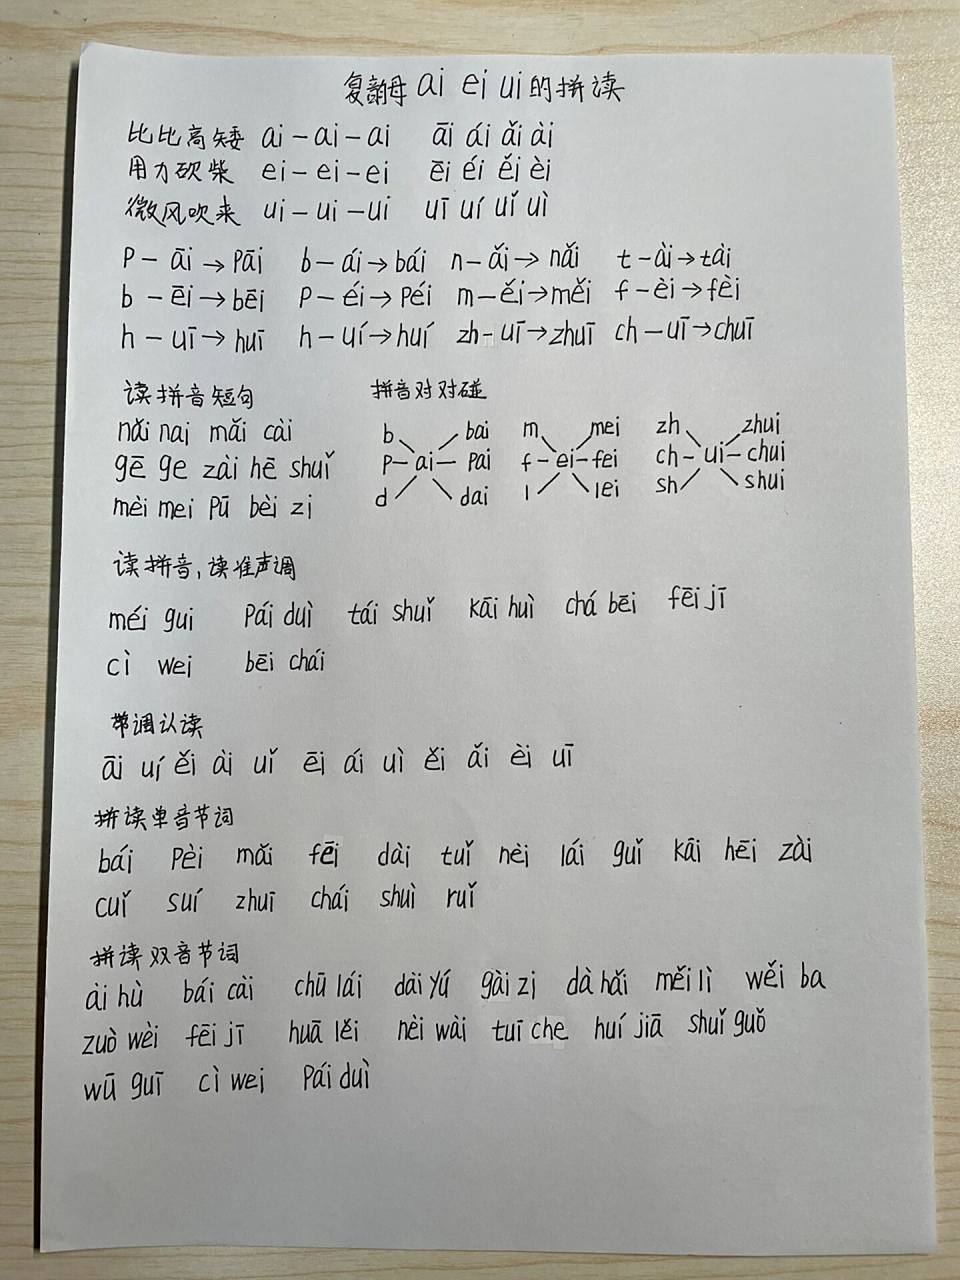 复韵母 ai ei ui 的拼读
比比高矮 ai – ai – ai āi ái ǎi ài
用力砍柴 ei – ei – ei ēi éi ěi èi
微风吹来 ui – ui – ui uī uí uǐ uì
p – āi → pāi b – ái → bái n – ǎi → nǎi t – ài → tài
b – ēi → bēi p – éi → péi m – ěi → měi f – èi → fèi
h – uī → huī h – uí → huí zh – uī → zhuī ch – uī → chuī
读拼音短句
nǎi nai mǎi cài
gē ge zài hē shuǐ
mèi mei pū bèi zi
拼音对对碰
b bai m mei zh zhui
p – ai – pai f – ei – fei ch – ui – chui
d dai l lei sh shui
读拼音,读准声调
méi gui pái duì tái shuǐ kāi huì chá bēi fēi jī
cì wei bēi chái
带调认读
āi uí ěi ài uǐ ēi ái uì ěi ǎi èi uī
拼读单音节词
bái pèi mǎi fēi dài tuǐ nèi lái guǐ kāi hēi zài
cuǐ suí zhuī chái shuì ruǐ
拼读双音节词
ài hù bái cài chū lái dài yú gài zi dà hǎi měi lì wěi ba
zuò wèi fēi jī huā lěi nèi wài tuī che huí jiā shuǐ guǒ
wū guī cì wei pái duì